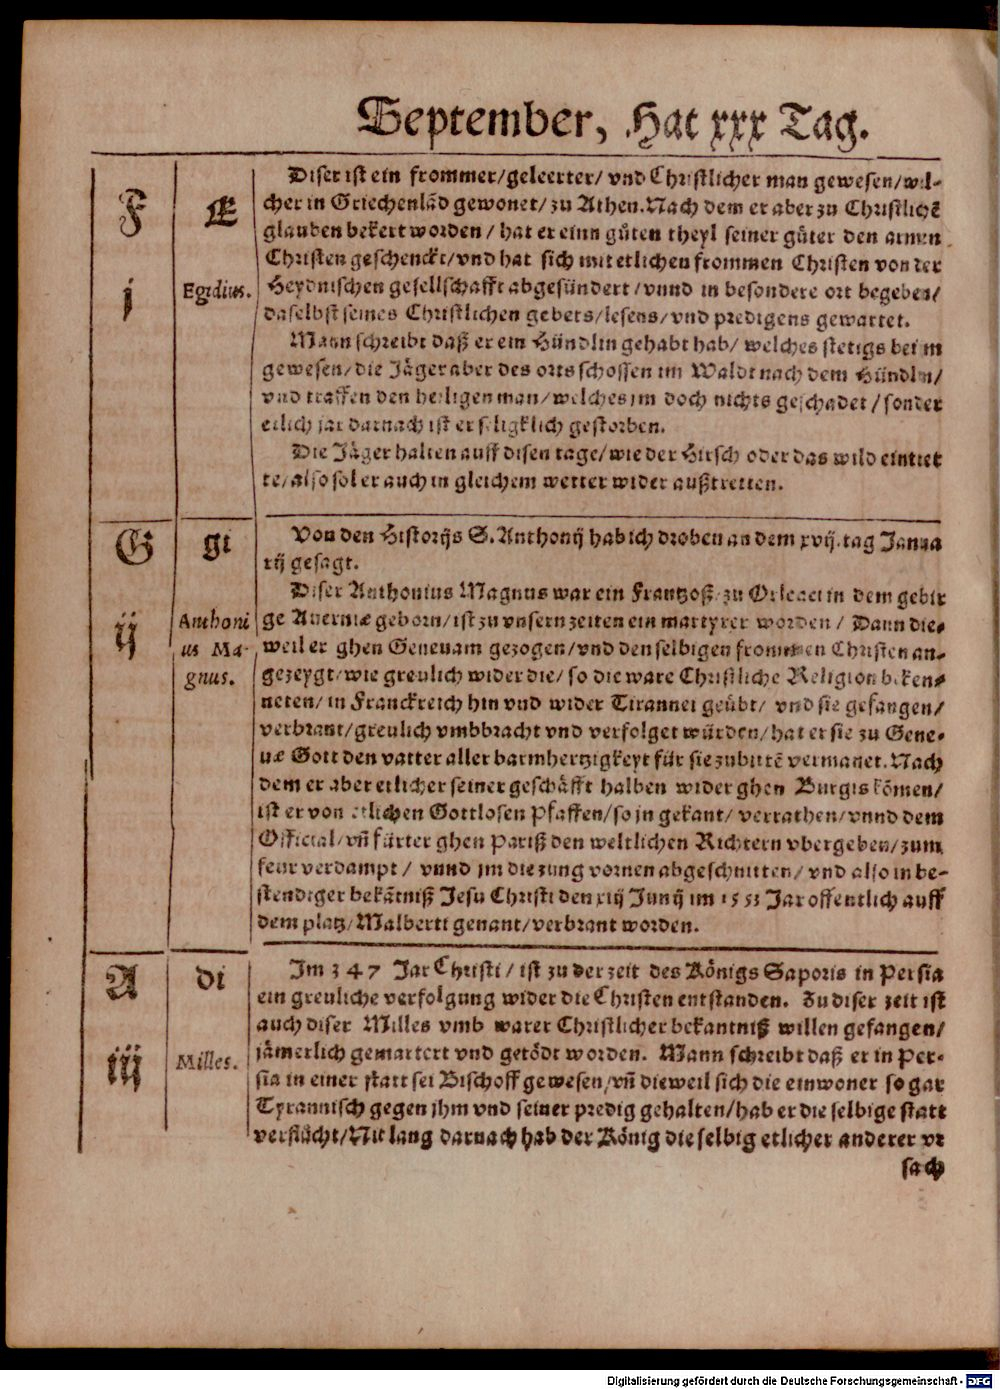 September, Hat xxx Tag.
F
E
j
Egidius.
Diser ist ein frommer/geleerter/ vnd Christlicher man gewesen/wel-
cher in Griechenlãd gewonet/zu Athen. Nach dem er aber zu Christlichẽ
glauben bekert worden/ hat er einn gůten theyl seiner gůter den armen
Christen geschenckt/vnd hat sich mit etlichen frommen Christen von der
Heydnischen gesellschafft abgesündert/vnnd in besondere ort begeben/
daselbst seines Christlichen gebets/lesens/vnd predigens gewartet.
Mann schreibt daß er ein Hündlin gehabt hab/ welches stetigs bei im
gewesen/die Jäger aber des orts schossen im Waldt nach dem Hündlin/
vnd traffen den heiligen man/welches jm doch nichts geschadet/sonder
etlich jar darnach ist er seligklich gestorben.
Die Jäger halten auff disen tage/wie der Hirsch oder das wild eintret
te/also sol er auch in gleichem wetter wider außtretten.
G
gi
ij
Anthoni
us Ma-
gnus.
Von den Historijs S. Anthonij hab ich droben an dem xvij. tag Janua
rij gesagt.
Diser Anthonius Magnus war ein Frantzoß/zu Orleaci in dem gebir
ge Auerniæ geborn/ist zu vnsern zeiten ein martyrer worden/ Dann die-
weil er ghen Geneuam gezogen/vnd den selbigen frommen Christen an-
gezeygt/wie greulich wider die/ so die ware Christliche Religion beken-
neten/in Franckreich hin vnd wider Tirannei geübt/ vnd sie gefangen/
verbrant/greulich vmbbracht vnd verfolget würden/hat er sie zu Gene-
uæ Gott den vatter aller barmhertzigkeyt für sie zubittẽ vermanet. Nach
dem er aber etlicher seiner geschäfft halben wider ghen Burgis kõmen/
ist er von etlichen Gottlosen Pfaffen/so jn gekant/ verrathen/vnnd dem
Official/vñ fürter ghen Pariß den weltlichen Richtern vbergeben/zum
feur verdampt/ vnnd jm die zung vornen abgeschnitten/ vnd also in be-
stendiger bekãtniß Jesu Christi den xiij Junij im 1553 Jar offentlich auff
dem platz/Malberti genant/verbrant worden.
A
di
iij
Milles.
Im 347 Jar Christi/ ist zu der zeit des Königs Saporis in Persia
ein greuliche verfolgung wider die Christen entstanden. Zu diser zeit ist
auch diser Milles vmb warer Christlicher bekantniß willen gefangen/
jämerlich gemartert vnd getödt worden. Mann schreibt daß er in Per-
sia in einer statt sei Bischoff gewesen/vñ dieweil sich die einwoner so gar
Tyrannisch gegen jhm vnd seiner predig gehalten/hab er die selbige statt
verflůcht/Nit lang darnach hab der König die selbig etlicher anderer vr
sach
Digitalisierung gefördert durch die Deutsche Forschungsgemeinschaft - DFG